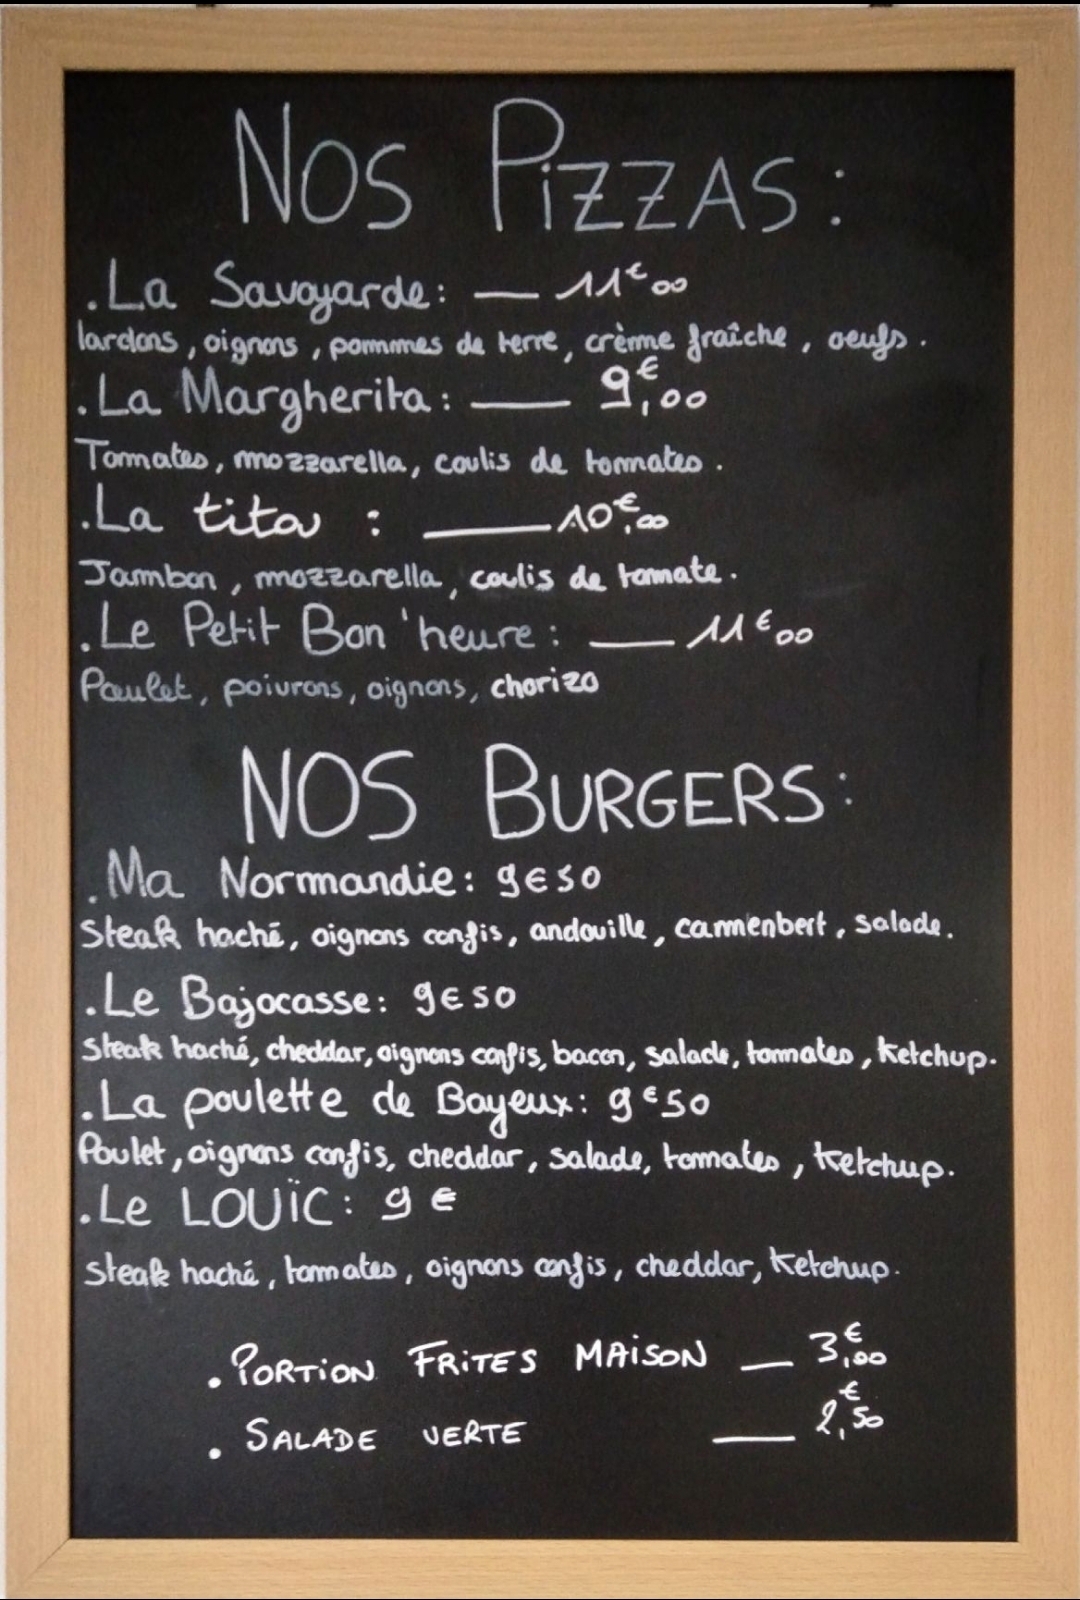 NOS PIZZAS :
. La Savoyarde : — 11€00
lardons, oignons, pommes de terre, crème fraîche, oeufs.
. La Margherita : — 9€,00
Tomates, mozzarella, coulis de tomates.
. La tita : — 10€,00
Jambon, mozzarella, coulis de tomate.
. Le Petit Bon'heure : — 11€00
Poulet, poivrons, oignons, chorizo
NOS BURGERS :
. Ma Normandie : 9€50
Steak haché, oignons confis, andouille, camenbert, salade.
. Le Bajocasse : 9€50
Steak haché, cheddar, oignons confis, bacon, salade, tomates, Ketchup.
. La poulette de Bayeux : 9€50
Poulet, oignons confis, cheddar, salade, tomates, Ketchup.
. Le LOUÏC : 9€
Steak haché, tomates, oignons confis, cheddar, Ketchup.
. PORTION FRITES MAISON — 3€,00
. SALADE VERTE — 2€,50